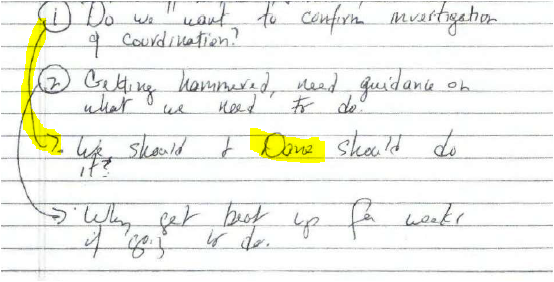 ① Do we "want" to confirm investigation
of coordination?
② Getting hammered, need guidance on
what we need to do.
→ We should & Dave should do
it?
→ Why get beat up for weeks
if going to do.